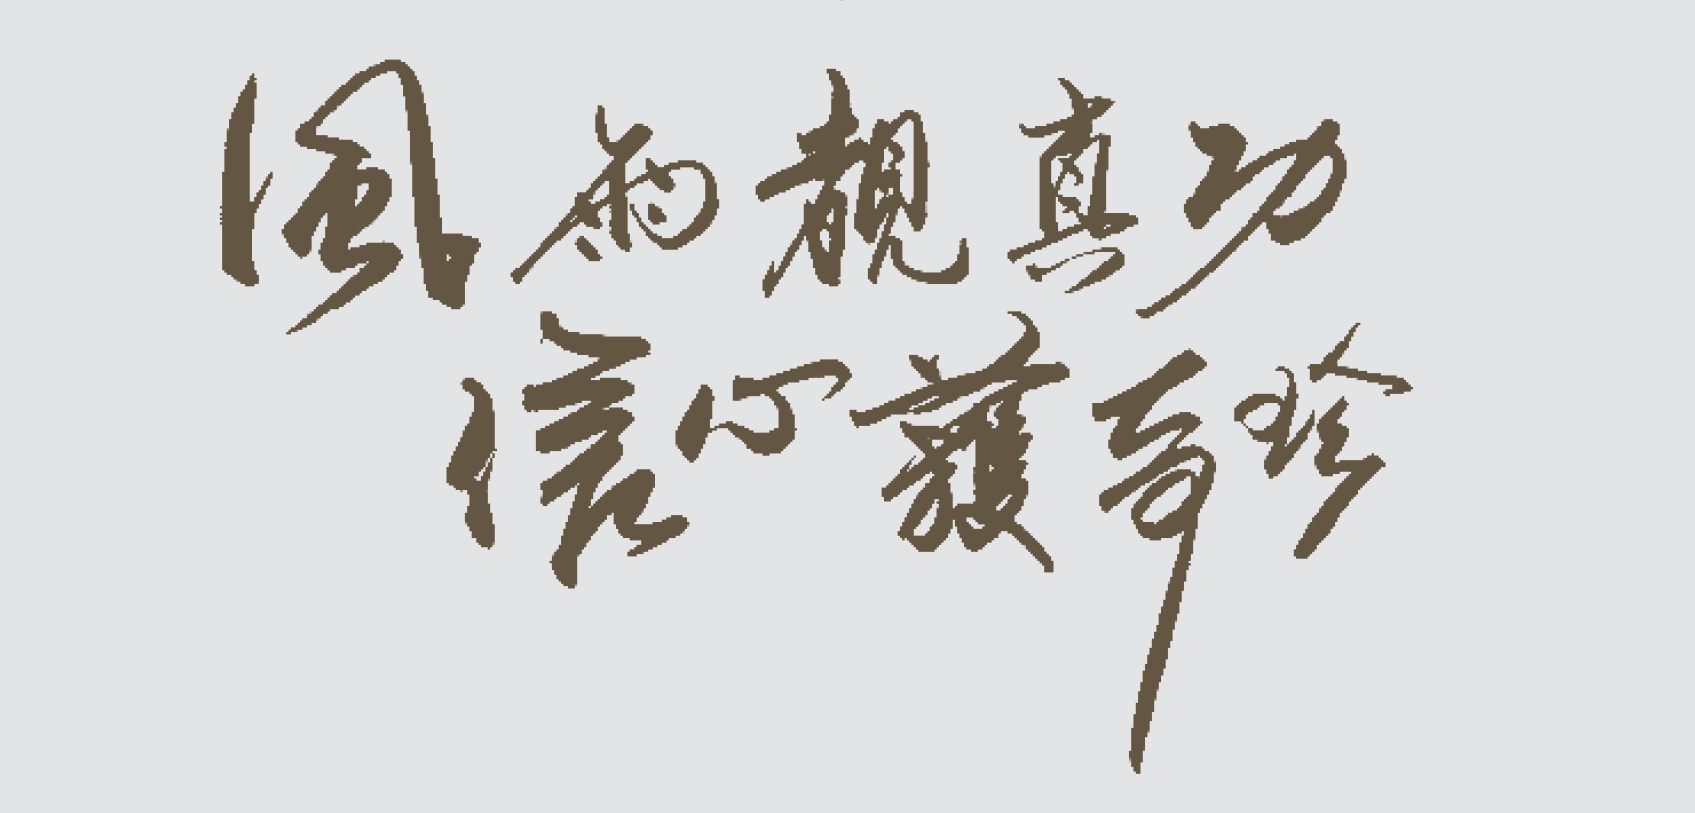 風雨靚真功
信心護奇珍